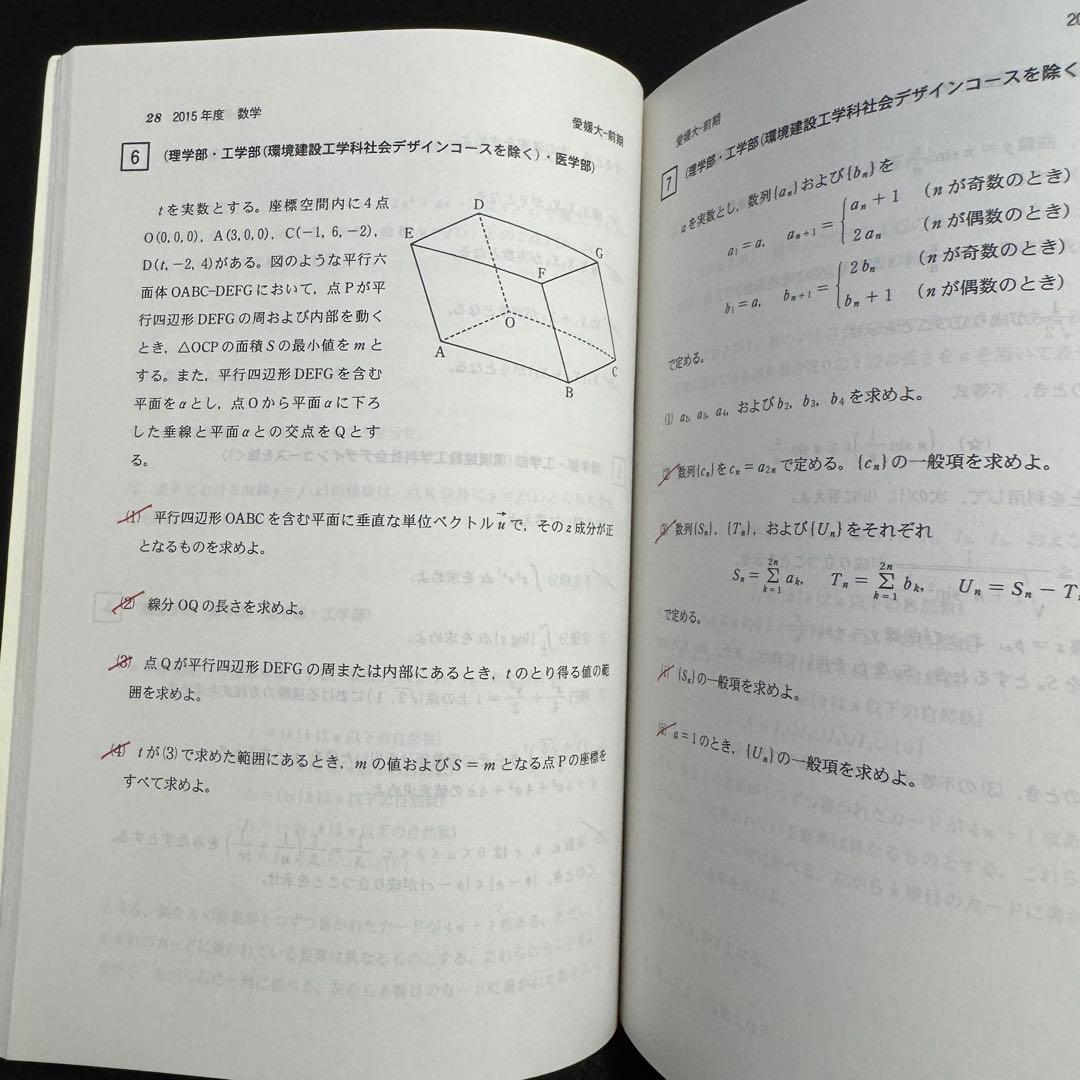 28 2015年度 数学
愛媛大-前期
6 (理学部・工学部(環境建設工学科社会デザインコースを除く)・医学部)
tを実数とする。座標空間内に4点
O(0,0,0), A(3,0,0), C(-1, 6, -2),
D(t, -2, 4)がある。図のような平行六
面体OABC-DEFGにおいて,点Pが平
行四辺形DEFGの周および内部を動く
とき,△OCPの面積Sの最小値をmと
する。また,平行四辺形DEFGを含む
平面をαとし,点Oから平面αに下ろ
した垂線と平面αとの交点をQとす
る。
D
E
G
F
O
A
C
B
(1) 平行四辺形OABCを含む平面に垂直な単位ベクトルu→で,そのz成分が正
となるものを求めよ。
(2) 線分OQの長さを求めよ。
(3) 点Qが平行四辺形DEFGの周または内部にあるとき,tのとり得る値の範
囲を求めよ。
(4) tが(3)で求めた範囲にあるとき,mの値およびS=mとなる点Pの座標を
すべて求めよ。
20
愛媛大-前期
7 (理学部・工学部(環境建設工学科社会デザインコースを除く
aを実数とし,数列{aₙ}および{bₙ}を
a₁=a, aₙ₊₁={aₙ+1 (nが奇数のとき)
2aₙ (nが偶数のとき)
b₁=a, bₙ₊₁={2bₙ (nが奇数のとき)
bₙ+1 (nが偶数のとき)
で定める。
(1) a₂, a₃, a₄, およびb₂, b₃, b₄を求めよ。
(2) 数列{cₙ}をcₙ=a₂ₙで定める。{cₙ}の一般項を求めよ。
(3) 数列{Sₙ}, {Tₙ}, および{Uₙ}をそれぞれ
Sₙ=Σ(k=1→2n) aₖ, Tₙ=Σ(k=1→2n) bₖ, Uₙ=Sₙ-T
で定める。
{Sₙ}の一般項を求めよ。
a=1のとき,{Uₙ}の一般項を求めよ。